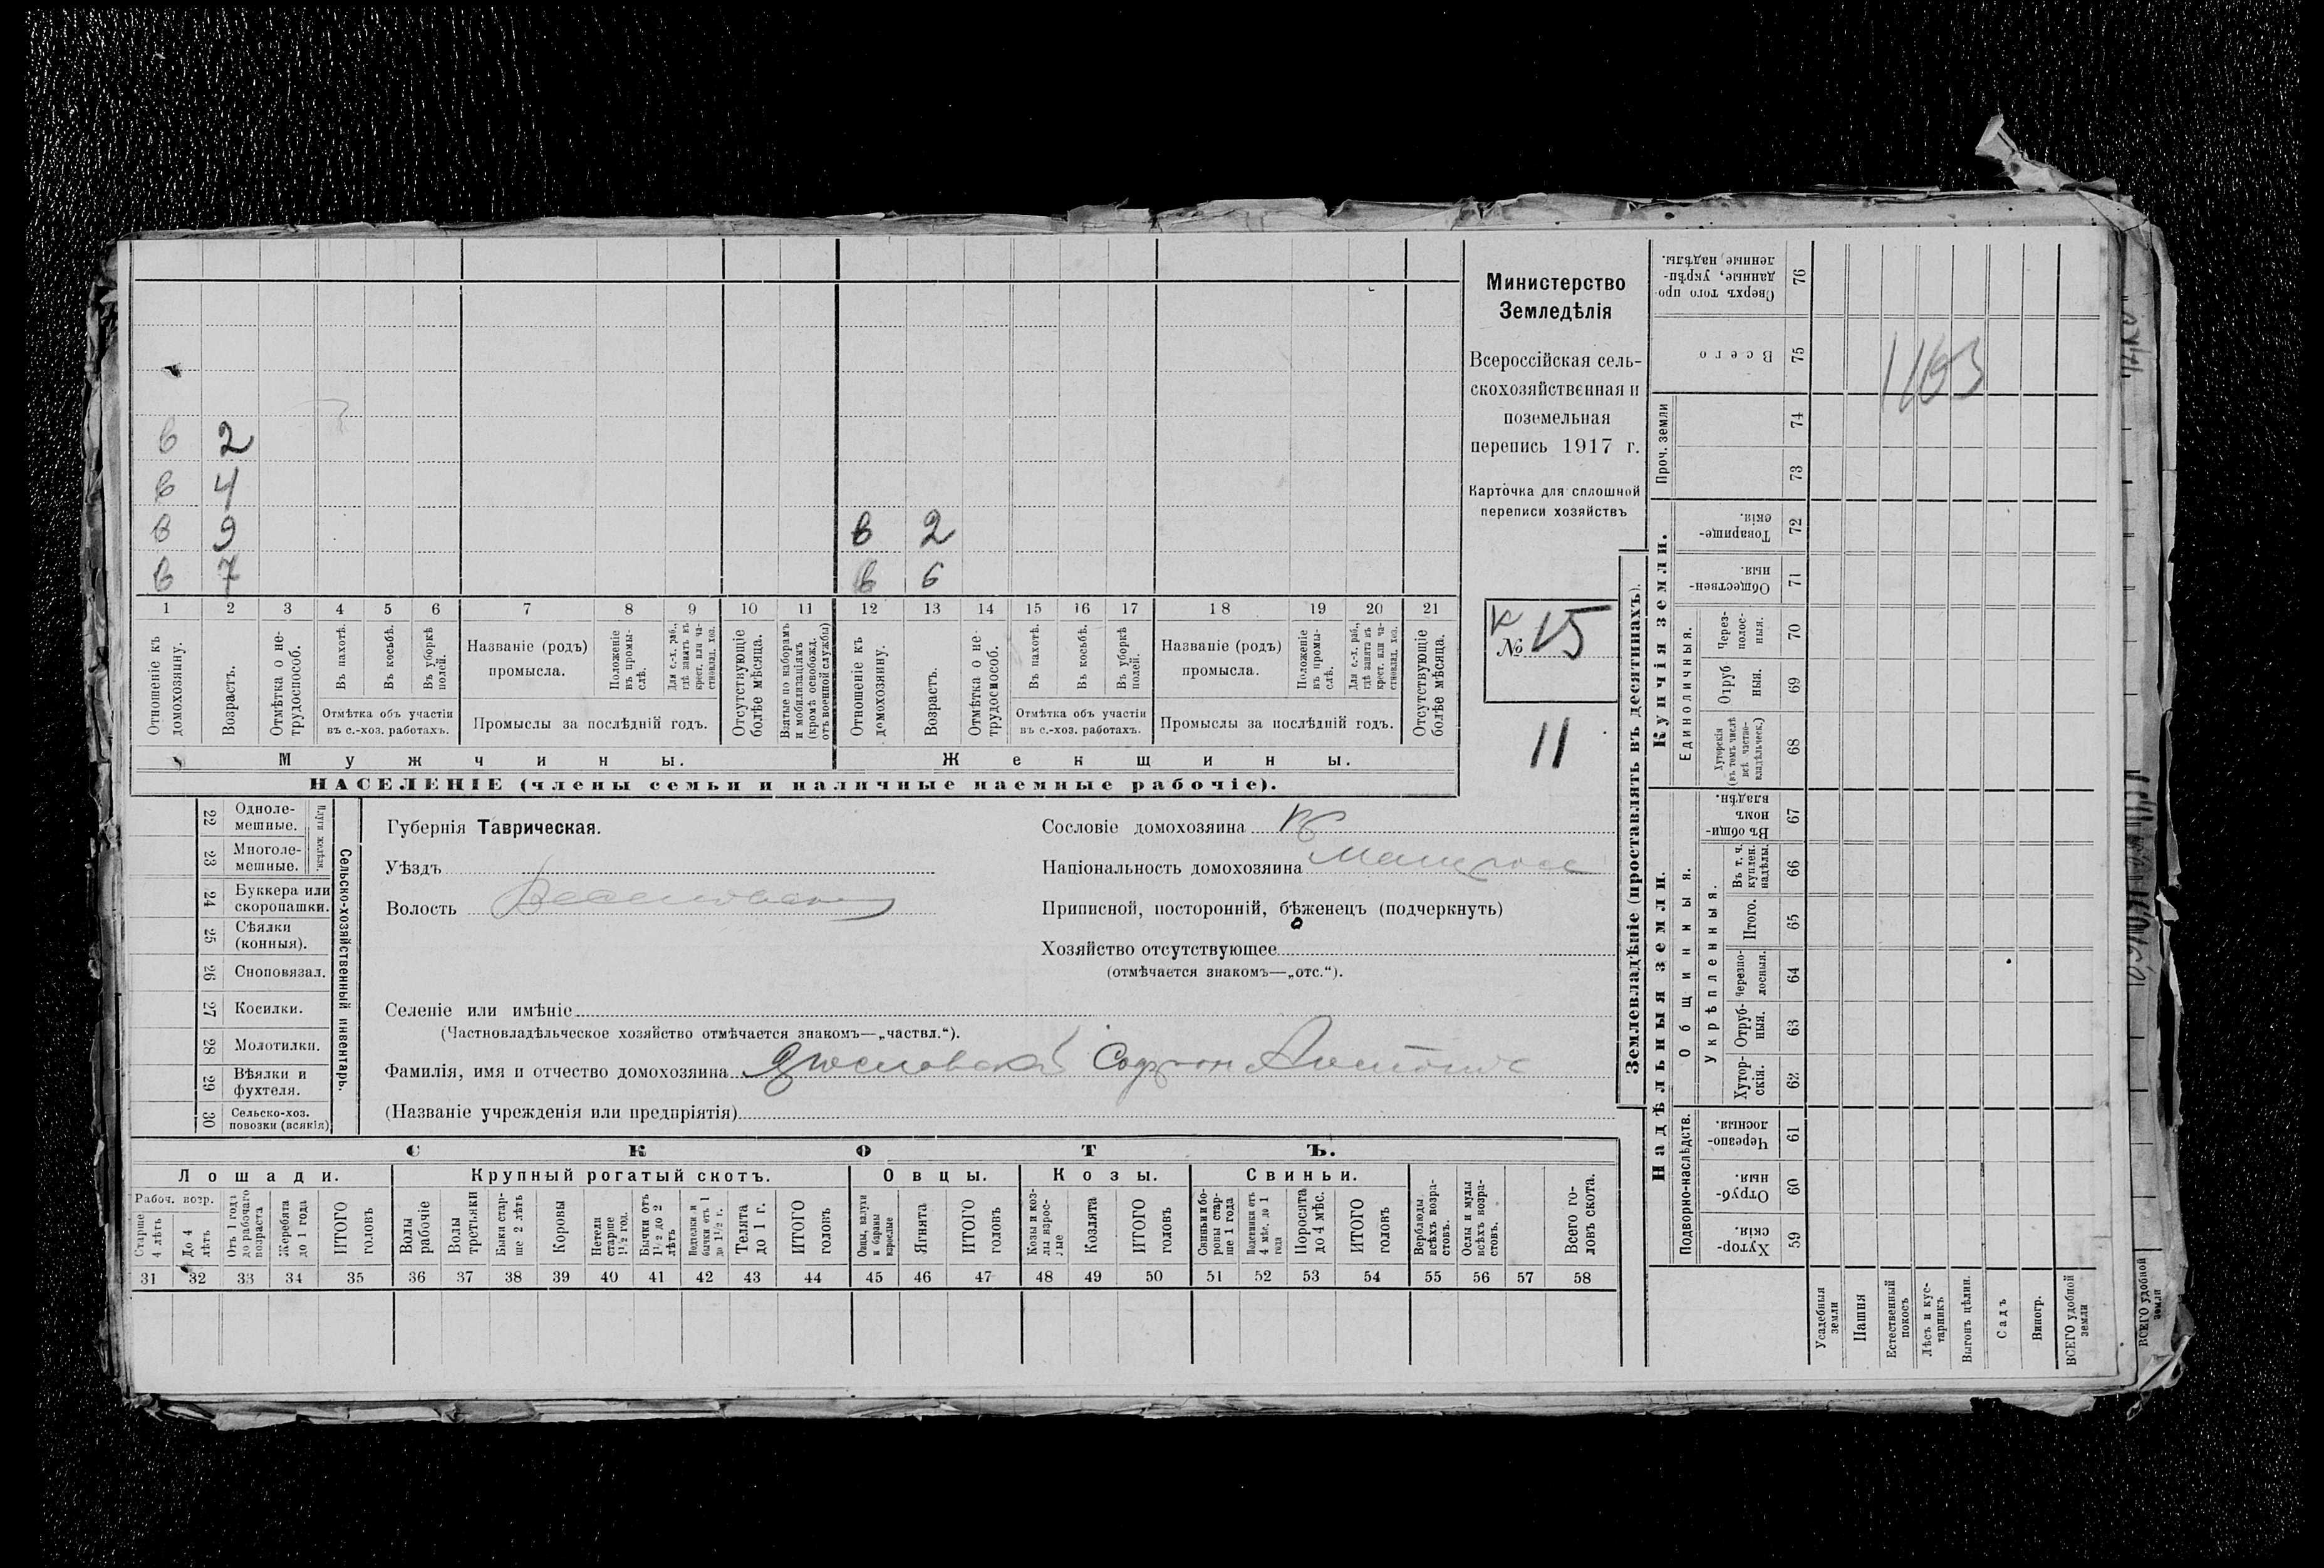 в 2
в 4
в 9 в 2
в 7 в 6
1 2 3 4 5 6 7 8 9 10 11 12 13 14 15 16 17 18 19 20 21
Отношеніе къ домохозяину.
Возрастъ.
Отмѣтка о не-трудоспособ.
Въ пахотѣ.
Въ косьбѣ.
Въ уборкѣ полей.
Отмѣтка объ участіи
въ с.-хоз. работахъ.
Названіе (родъ)
промысла.
Положеніе въ промы-слѣ.
Для с.-х. раб., гдѣ занятъ въ крест. или ча-стновлад. хоз.
Промыслы за послѣдній годъ.
Отсутствующіе болѣе мѣсяца.
Взятые по наборамъ и мобилизаціямъ (кромѣ освобожд. отъ военной службы)
Отношеніе къ домохозяину.
Возрастъ.
Отмѣтка о не-трудоспособ.
Въ пахотѣ.
Въ косьбѣ.
Въ уборкѣ полей.
Отмѣтка объ участіи
въ с.-хоз. работахъ.
Названіе (родъ)
промысла.
Положеніе въ промы-слѣ.
Для с.-х. раб., гдѣ занятъ въ крест. или ча-стновлад. хоз.
Промыслы за послѣдній годъ.
Отсутствующіе болѣе мѣсяца.
Мужчины. Женщины.
НАСЕЛЕНІЕ (члены семьи и наличные наемные рабочіе).
Министерство
Земледѣлія
Всероссійская сель-
скохозяйственная и
поземельная
перепись 1917 г.
Карточка для сплошной
переписи хозяйствъ
№ 15
11
22 Одноле-мешные.
23 Многоле-мешные.
Плуги желѣзн.
24 Буккера или скоропашки.
25 Сѣялки (конныя).
26 Сноповязал.
27 Косилки.
28 Молотилки.
29 Вѣялки и фухтеля.
30 Сельско-хоз. повозки (всякія)
Сельско-хозяйственный инвентарь.
Губернія Таврическая.
Уѣздъ
Волость
Сословіе домохозяина
Національность домохозяина
Приписной, посторонній, бѣженецъ (подчеркнуть)
Хозяйство отсутствующее
(отмѣчается знакомъ—„отс.“).
Селеніе или имѣніе
(Частновладѣльческое хозяйство отмѣчается знакомъ—„частвл.“).
Фамилія, имя и отчество домохозяина Софрон
(Названіе учрежденія или предпріятія)
СКОТЪ.
Лошади. Крупный рогатый скотъ. Овцы. Козы. Свиньи.
Рабоч. возр.
Старше 4 лѣтъ
До 4 лѣтъ
Отъ 1 года до рабочаго возраста
Жеребята до 1 года
ИТОГО головъ
Волы рабочіе
Волы третьяки
Быки стар-ше 2 лѣтъ
Коровы
Нетели старше 1½ год.
Бычки отъ 1½ до 2 лѣтъ
Подтелки и бычки отъ 1 до 1½ г.
Телята до 1 г.
ИТОГО головъ
Овцы, валухи и бараны взрослые
Ягнята
ИТОГО головъ
Козы и коз-лы взрос-лые
Козлята
ИТОГО головъ
Свиньи и бо-ровы стар-ше 1 года
Подсвинки отъ 4 мѣс. до 1 года
Поросята до 4 мѣс.
ИТОГО головъ
Верблюды всѣхъ возра-стовъ.
Ослы и мулы всѣхъ возра-стовъ.
Всего го-ловъ скота.
31 32 33 34 35 36 37 38 39 40 41 42 43 44 45 46 47 48 49 50 51 52 53 54 55 56 57 58
Землевладѣніе (проставлять въ десятинахъ).
Купчія земли.
Надѣльныя земли.
Сверхъ того про-данные, укрѣп-ленные надѣлы. 76
Всего 75
1163
Проч. земли
74
73
Товарище-скія. 72
Обществен-ныя. 71
Единоличныя.
Через-полос-ныя. 70
Отруб-ныя. 69
Хуторскія (въ томъ числѣ всѣ частно-владѣльческ.) 68
Общинныя.
Въ общи-номъ владѣн. 67
Укрѣпленныя.
Въ т. ч. куплен. надѣлы. 66
Итого. 65
Черезпо-лосныя. 64
Отруб-ныя. 63
Хутор-скія. 62
Подворно-наслѣдств.
Черезпо-лосныя. 61
Отруб-ныя. 60
Хутор-скія. 59
Усадебныя земли
Пашня
Естественный покосъ
Лѣсъ и кус-тарникъ
Выгонъ цѣлин.
Садъ
Виногр.
ВСЕГО удобной земли
ВСЕГО удобной земли